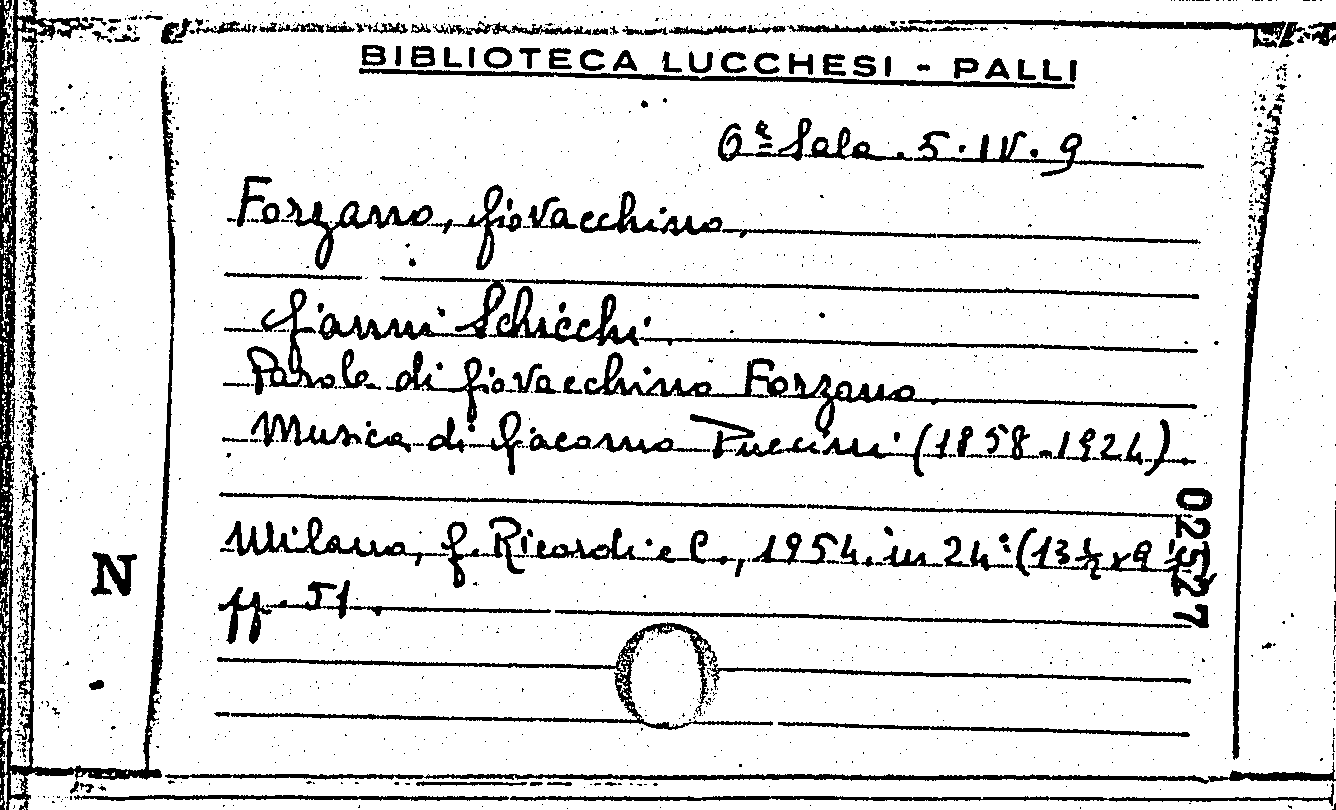 BIBLIOTECA LUCCHESI - PALLI
6ª Sala. 5.IV.9
Forzano, Giovacchino.
Gianni Schicchi.
Parole di Giovacchino Forzano.
Musica di Giacomo Puccini (1858-1924).
Milano, G. Ricordi e C., 1954. in 24° (13 ½ x 9
pp. 51.
02527
N